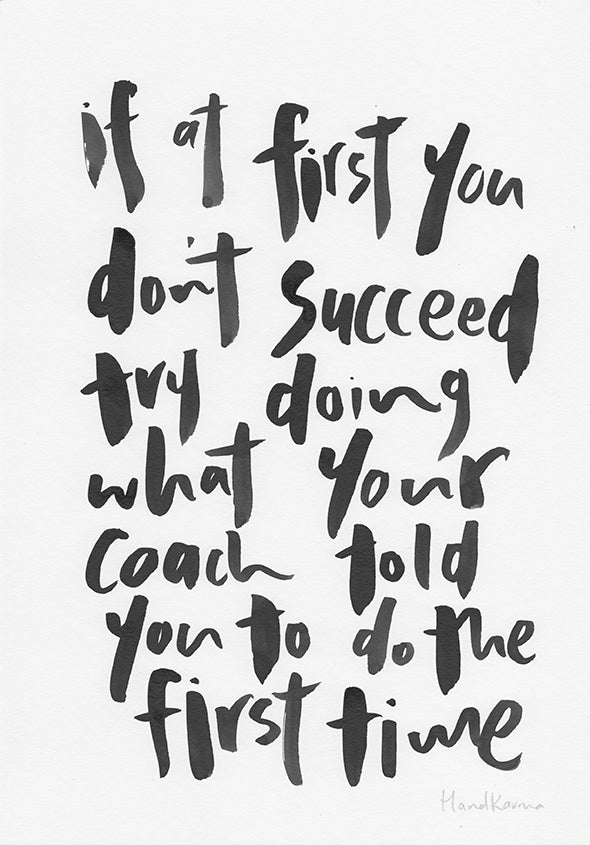 if at first you
don't succeed
try doing
what your
coach told
you to do the
first time
HandKarma